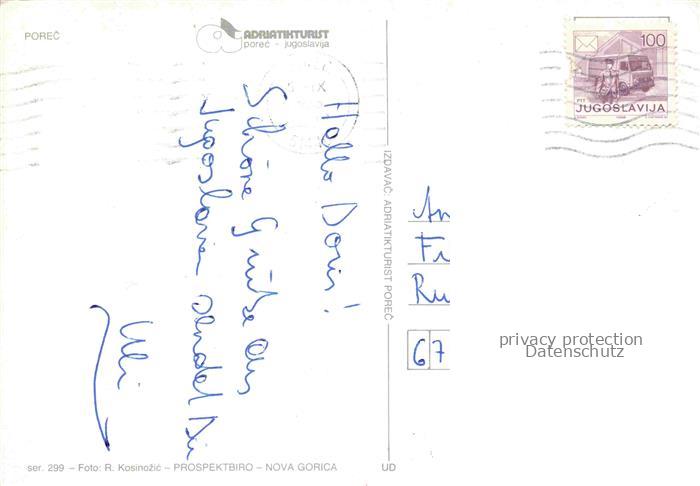 POREČ
ADRIATIKTURIST
poreč - jugoslavija
100
PTT
JUGOSLAVIJA
Hallo Doris!
Schöne Grüße aus
Jugoslavien sendet Dir
Uli
IZDAVAČ ADRIATIKTURIST POREČ
An
Fr
Ru
67
privacy protection
Datenschutz
ser. 299 – Foto: R. Kosinožić – PROSPEKTBIRO – NOVA GORICA
UD